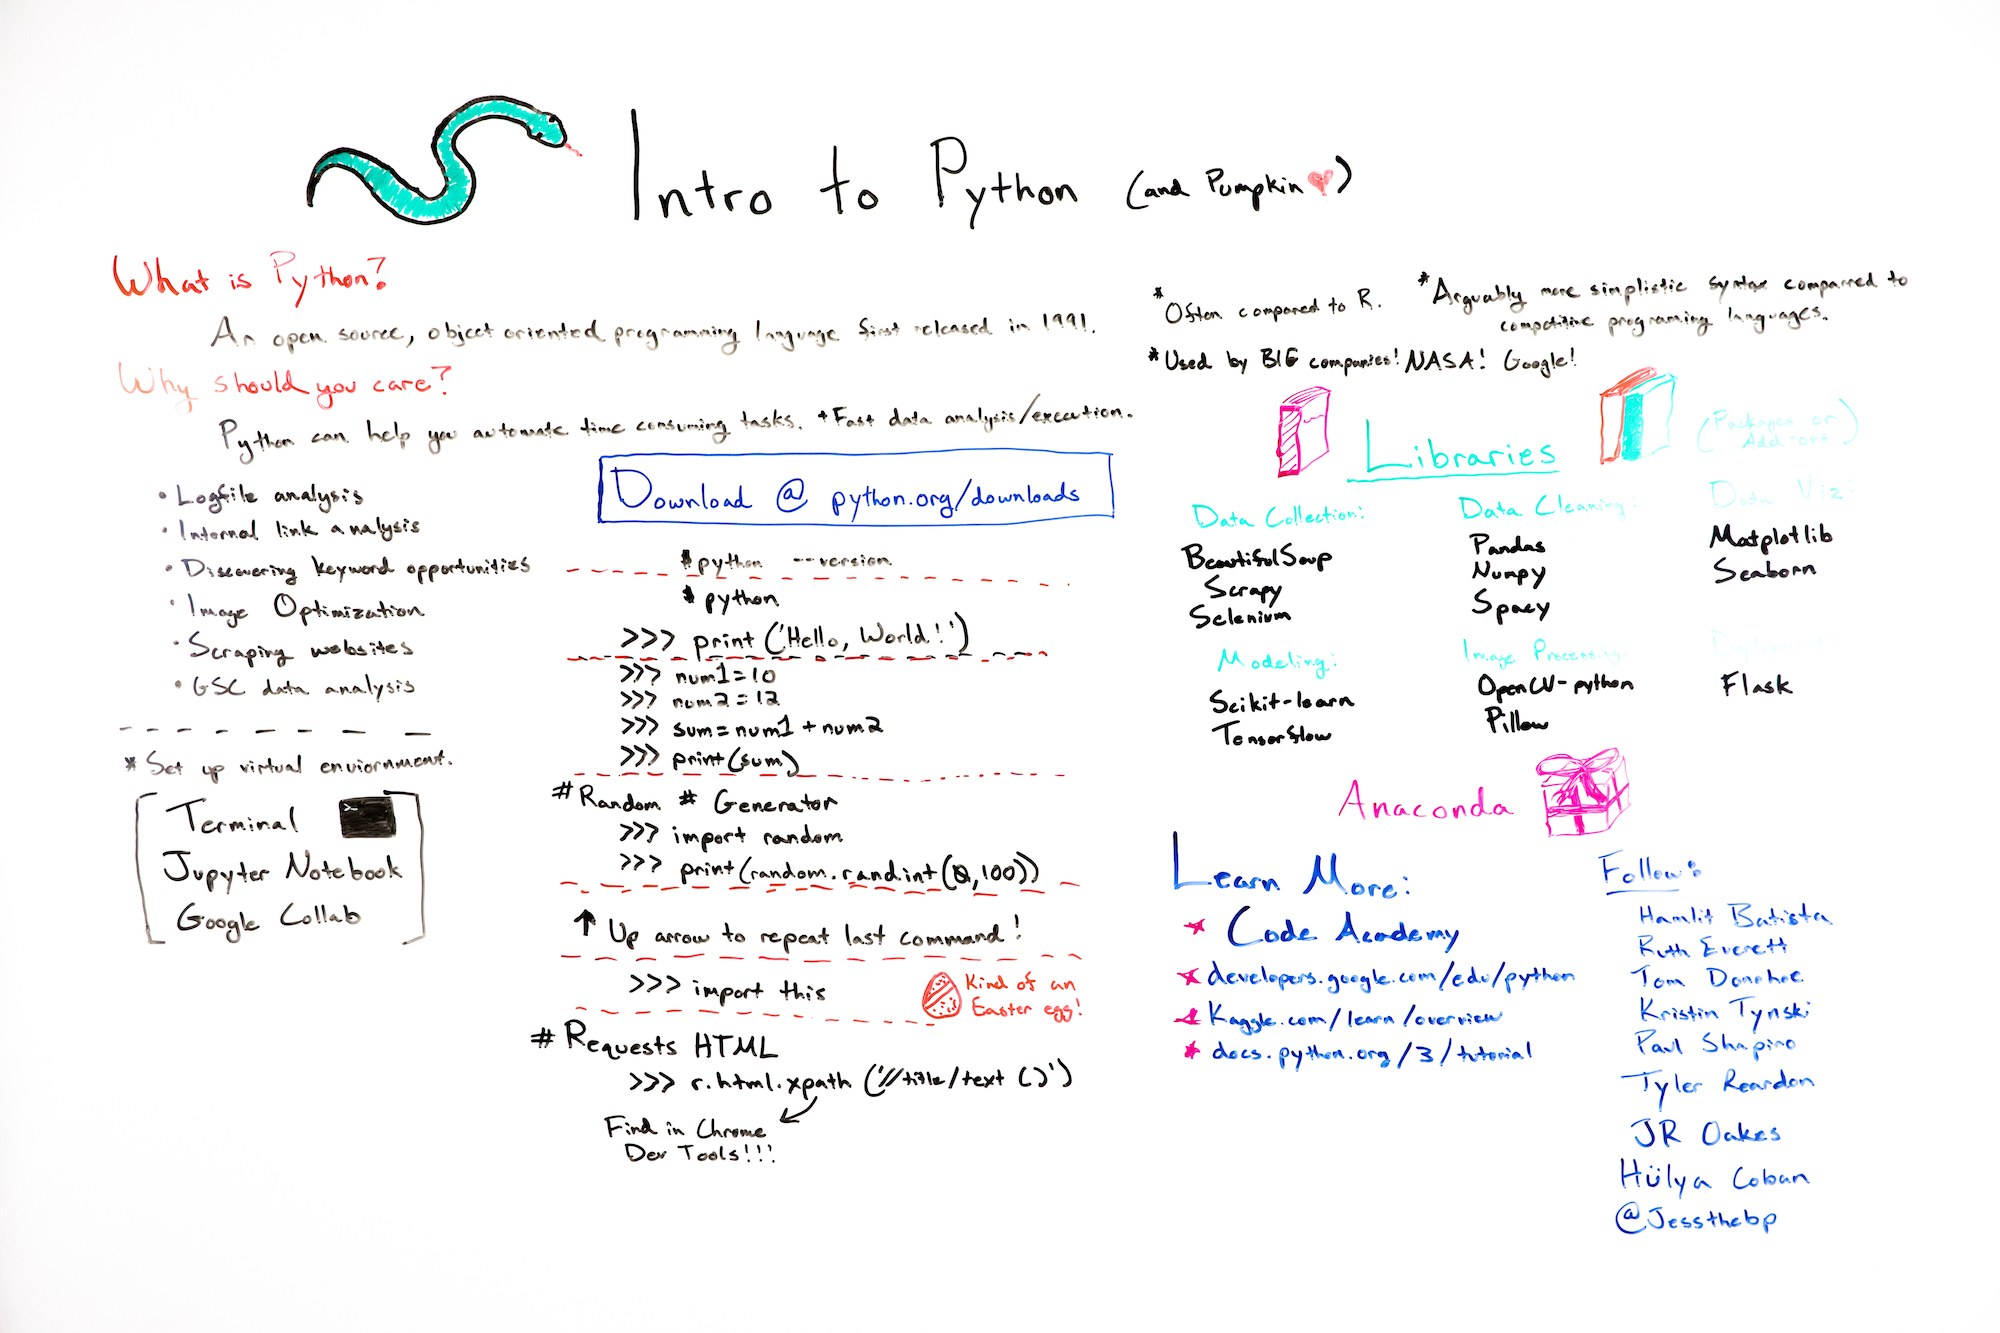 Intro to Python (and Pumpkin ♥)
What is Python?
An open source, object oriented programming language first released in 1991.
Why should you care?
Python can help you automate time consuming tasks. + Fast data analysis/execution.
• Logfile analysis
• Internal link analysis
• Discovering keyword opportunities
• Image Optimization
• Scraping websites
• GSC data analysis
* Set up virtual enviornment.
Terminal
Jupyter Notebook
Google Collab
Download @ python.org/downloads
$ python --version
$ python
>>> print('Hello, World!')
>>> num1=10
>>> num2=12
>>> sum=num1+num2
>>> print(sum)
# Random # Generator
>>> import random
>>> print(random.randint(0,100))
↑ Up arrow to repeat last command!
>>> import this
Kind of an
Easter egg!
# Requests HTML
>>> r.html.xpath('//title/text()')
Find in Chrome
Dev Tools!!!
* Often compared to R.
* Arguably more simplistic syntax comparred to
competitive programing languages.
* Used by BIG companies! NASA! Google!
Libraries
(Packages or
Add-ons)
Data Collection:
BeautifulSoup
Scrapy
Selenium
Data Cleaning:
Pandas
Numpy
Spacy
Data Viz:
Matplotlib
Seaborn
Modeling:
Scikit-learn
Tensorflow
Image Processing:
OpenCV-python
Pillow
Deployment
Flask
Anaconda
Learn More:
* Code Academy
* developers.google.com/edu/python
* Kaggle.com/learn/overview
* docs.python.org/3/tutorial
Follow:
Hamlit Batista
Ruth Everett
Tom Donohoe
Kristin Tynski
Paul Shapiro
Tyler Reardon
JR Oakes
Hülya Coban
@Jessthebp